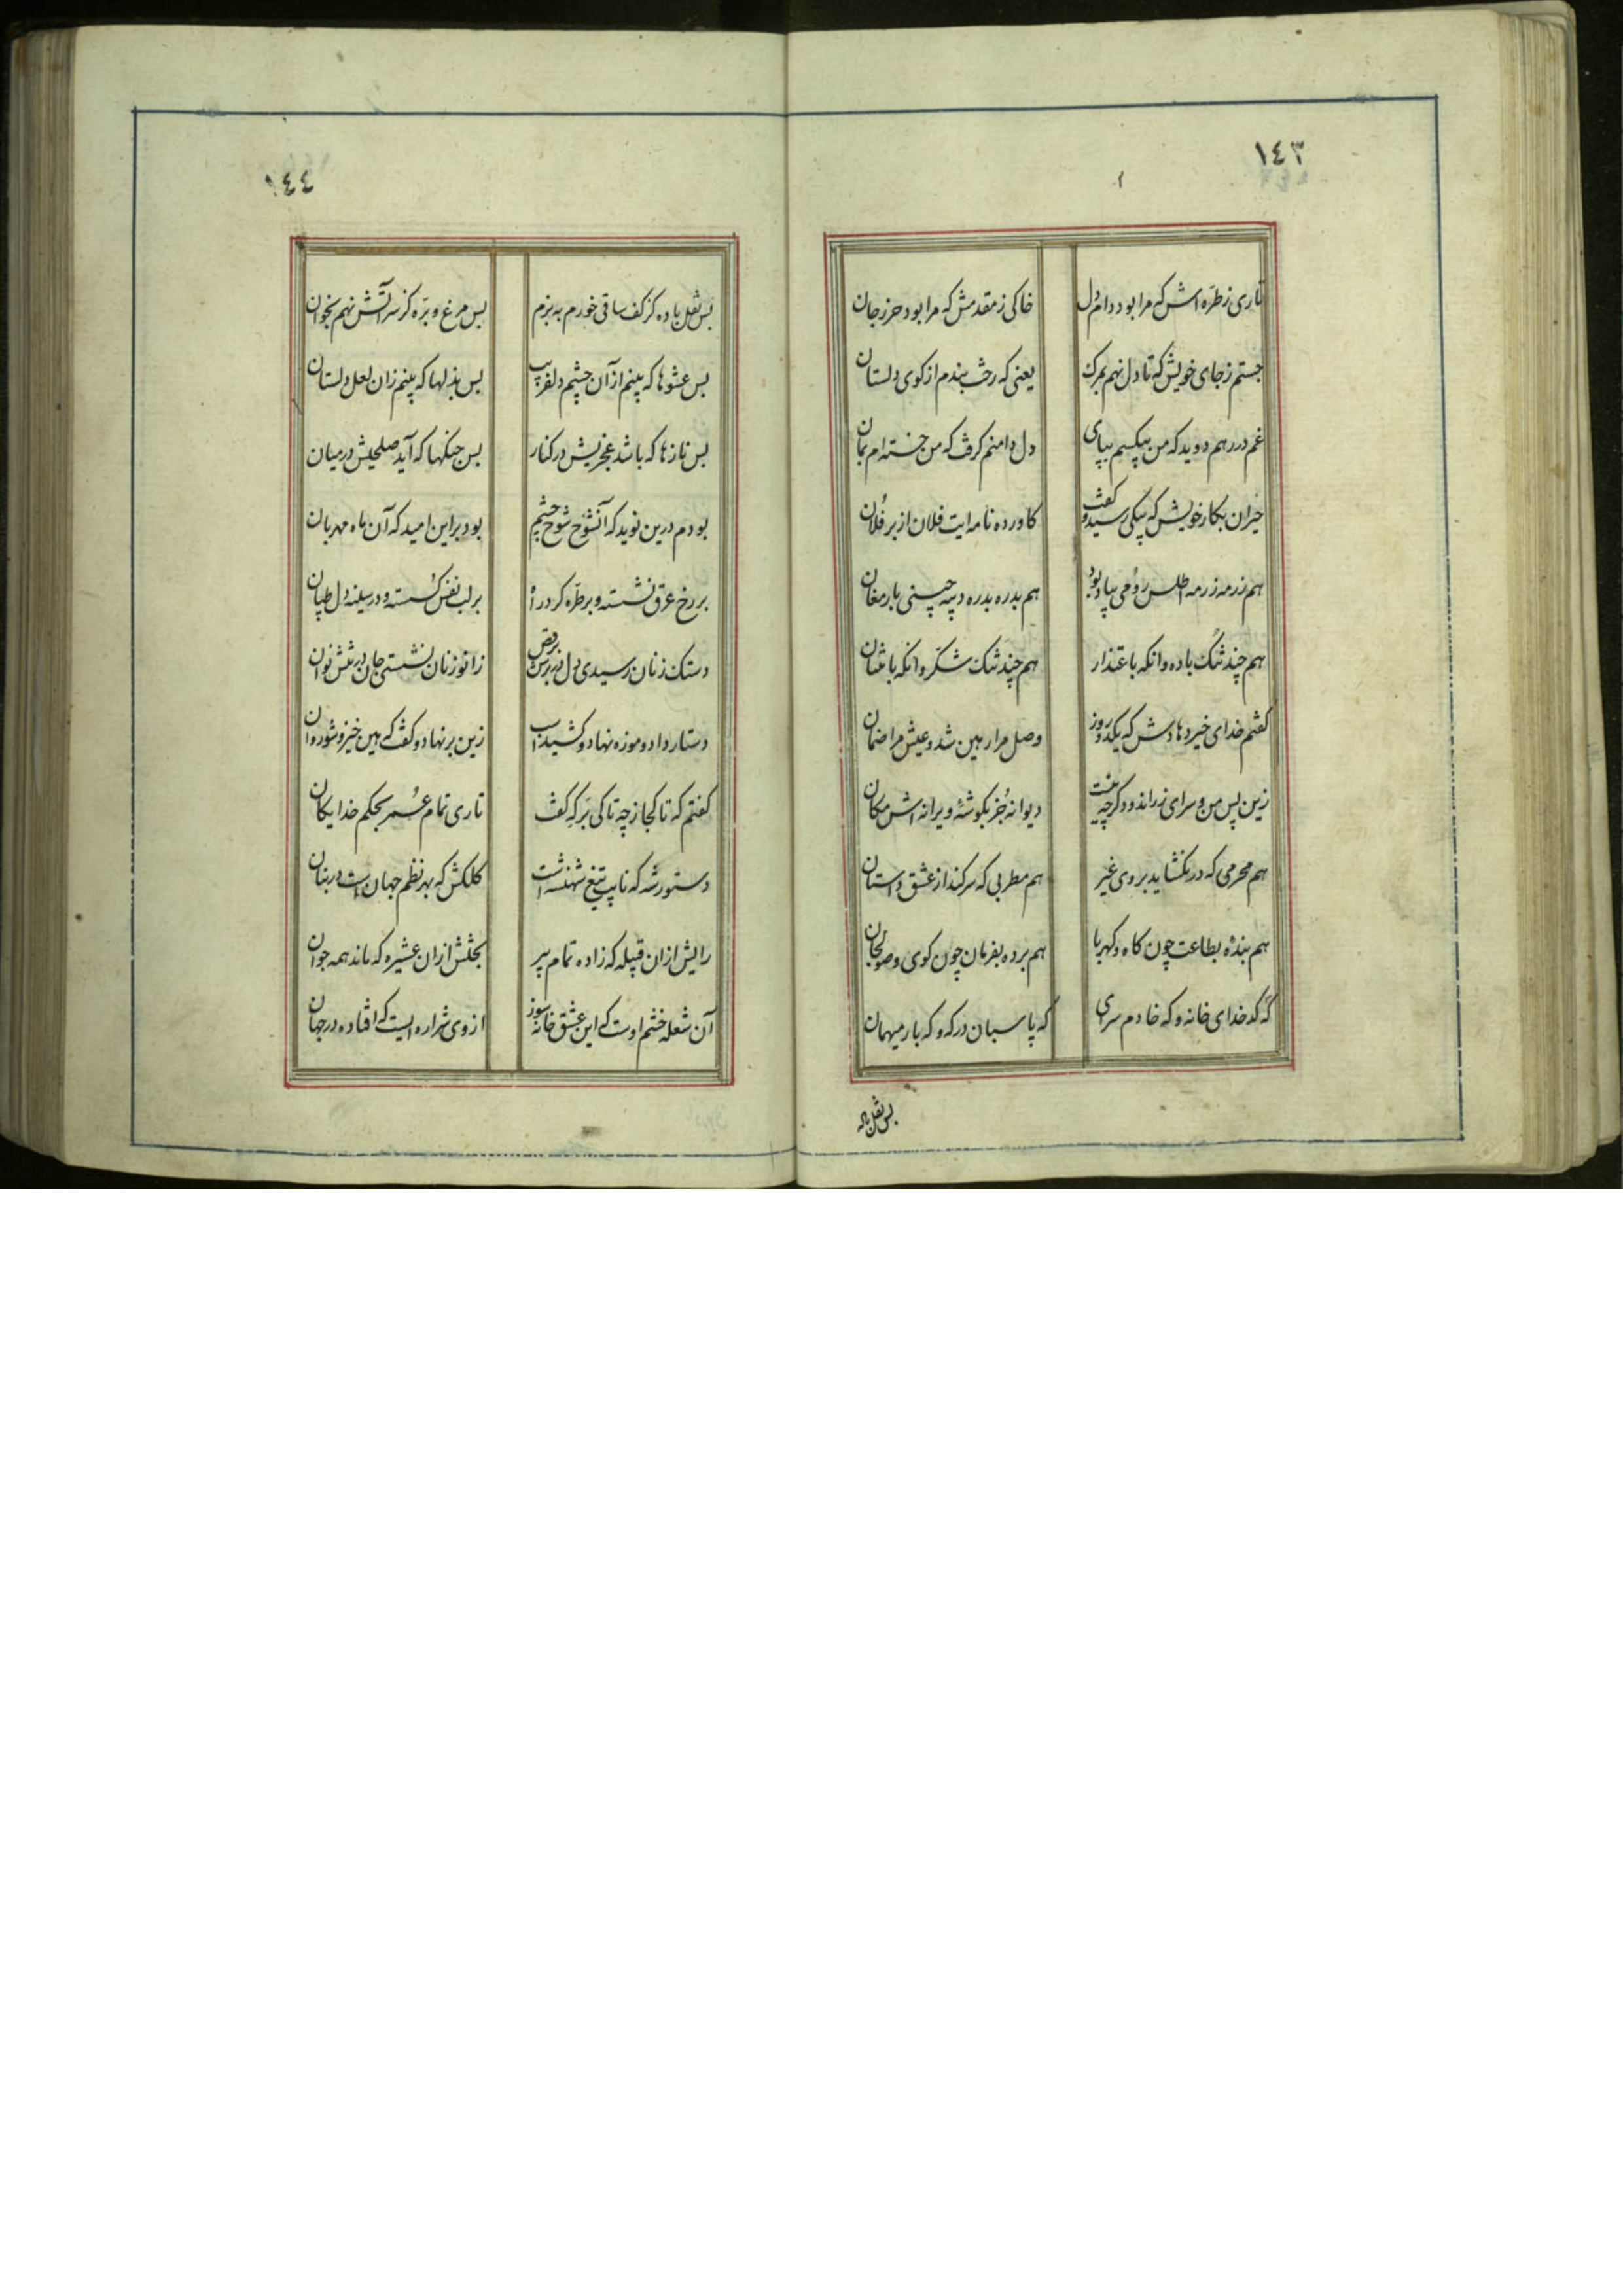 ١٤٣
تاری ز طرّه اش که مرا بود دام دل
خاکی ز مقدمش که مرا بود حرز جان
جستم ز جای خویش که تا دل نهم بمرک
یعنی که رخت بندم از کوی دلستان
غم در رهم دوید که من بیکسم بپای
دل دامنم کرفت که من خسته ام بمان
حیران بکار خویش که پیکی رسید و گفت
کاورده نامه ایت فلان از بر فلان
هم رزمه رزمه اطلس رومی بپاد بود
هم بدره بدره دیبه چینی بارمغان
هم چند تنک باده وانکه باعتذار
هم چند تنک شکّر وانکه بامتنان
کفتم خدای خیر دهادش که یکدو روز
وصل مرا رهین شد و عیش مرا ضمان
زین پس من و سرای زراندود کرچه نیست
دیوانه جُز بکوشهٔ ویرانه اش مکان
هم محرمی که در نکشاید بروی غیر
هم مطربی که سر کند از عشق داستان
هم بندهٔ بطاعت چون کاه و کهربا
هم برده بفرمان چون کوی و صولجان
که کدخدای خانه و که خادم سرای
که پاسبان درکه و که یار میهمان
بس نقل باده
١٤٤
بس نقل باده کز کف ساقی خورم به بزم
بس مرغ و برّه کز سر آتش نهم بخوان
بس عشوها که بینم از آن چشم دلفریب
بس بذلها که بینم زان لعل دلستان
بس نازها که باشد عجزیش در کنار
بس جنکها که آید صلحیش در میان
بودم درین نوید که آنشوخ شوخ چشم
بود بر این امید که آن ماه مهربان
بر رخ عرق نشسته و بر طرّه کرد راه
بر لب نفس کسسته و در سینه دل طپان
دستک زنان رسیدی دل در برش برقص
زانو زنان نشستی جان در تنش نوان
دستار داد و موزه نهاد و کشید اسب
زین بر نهاد و کفت که هین خیز و شو روان
کفتم که تا کجا ز چه تا کی بر که کفت
تاری تمام عُمر بحکم خدایکان
دستور شه که نایب تیغ شهنشه است
کلکش که بهر نظم جهان است در بنان
رایش از ان قبیله که زاده تمام پیر
بختش از ان عشیره که ماند همه جوان
آن شعله خشم اوست که این عشق خانه سوز
از وی شراره ایست که افتاده در جهان